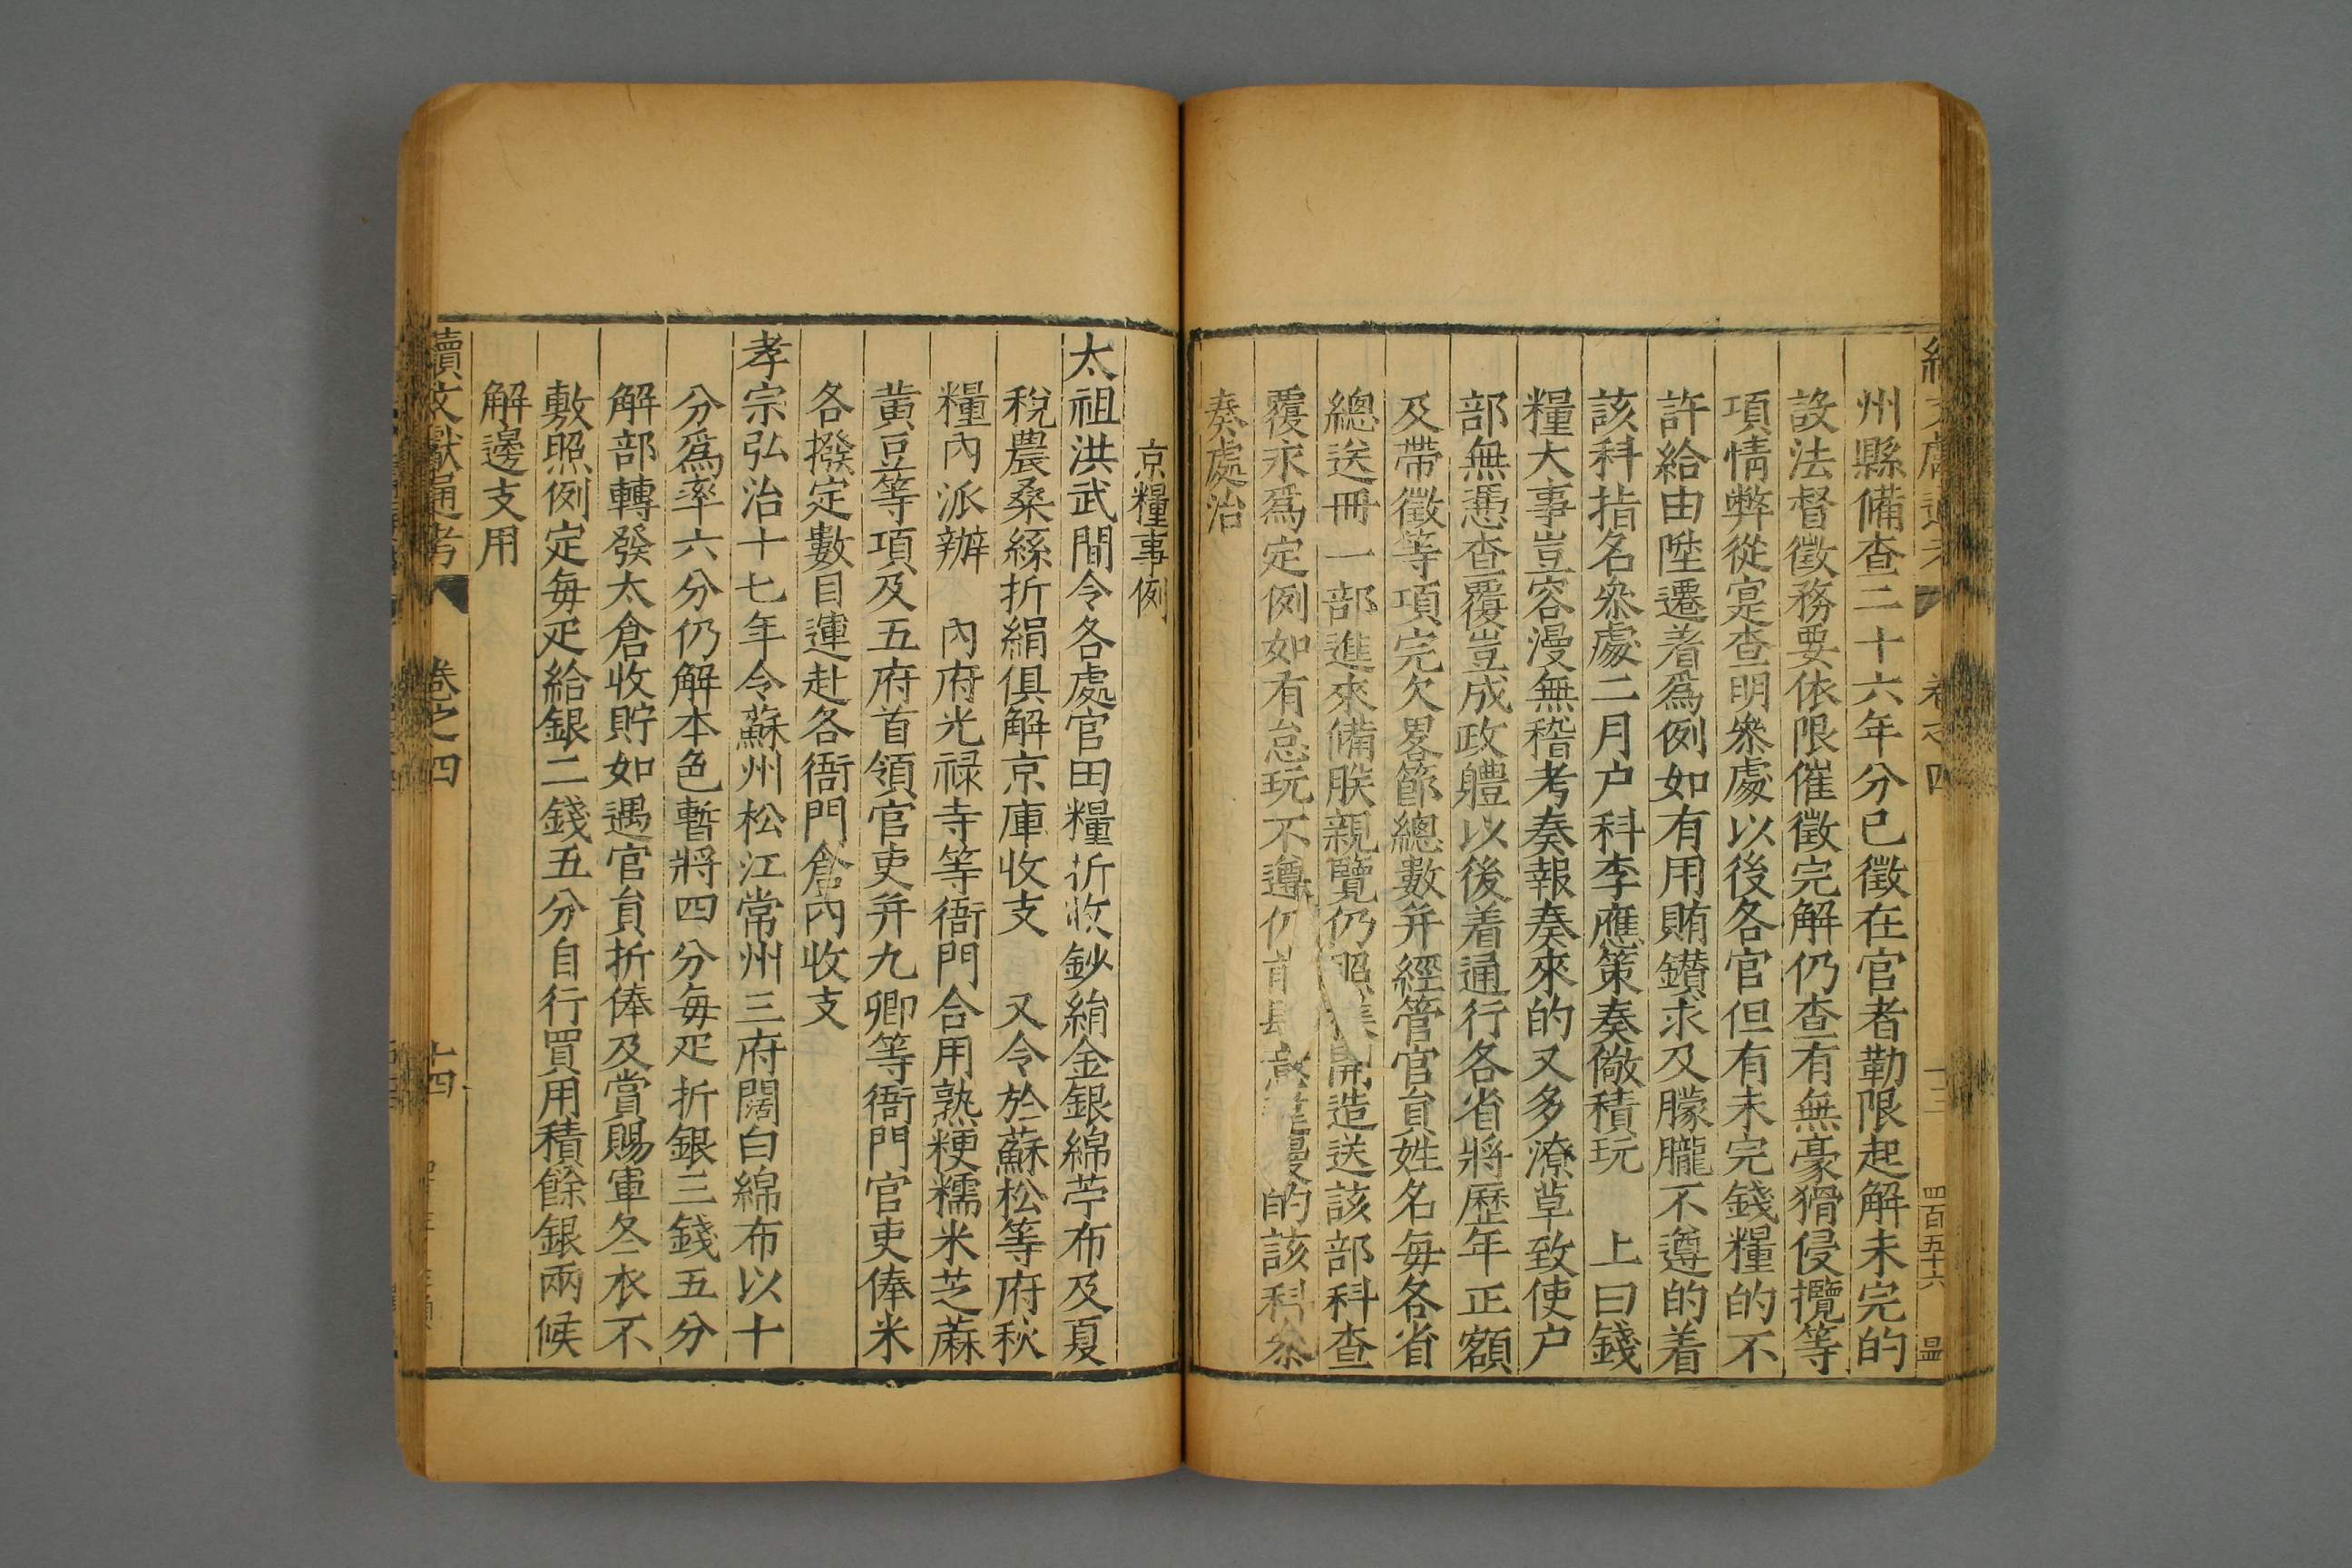 卷之四
四百五十六
州縣備查二十六年分已徵在官者勒限起解未完的
設法督徵務要依限催徵完解仍查有無豪猾侵攬等
項情弊從寔查明叅處以後各官但有未完錢糧的不
許給由陞遷着爲例如有用賄鑽求及朦朧不遵的着
該科指名叅處二月户科李應策奏儆積玩　上曰錢
糧大事豈容漫無稽考奏報奏來的又多潦草致使户
部無憑查覆豈成政體以後着通行各省將歷年正額
及帶徵等項完欠畧節總數并經管官貟姓名每各省
總送冊一部進來備朕親覽仍照樣開造送該部科查
覆永爲定例如有怠玩不遵仍前漫的該科叅
奏處治
京糧事例
太祖洪武間令各處官田糧折收鈔絹金銀綿苧布及夏
稅農桑絲折絹俱解京庫收支　又令於蘇松等府秋
糧內派辦　內府光禄寺等衙門合用熟粳糯米芝蔴
黄豆等項及五府首領官吏并九卿等衙門官吏俸米
各撥定數目運赴各衙門倉內收支
孝宗弘治十七年令蘇州松江常州三府闊白綿布以十
分爲率六分仍解本色暫將四分每疋折銀三錢五分
解部轉發太倉收貯如遇官貟折俸及賞賜軍冬衣不
敷照例定每疋給銀二錢五分自行買用積餘銀兩候
解邊支用
續文獻通考　卷之四　十四